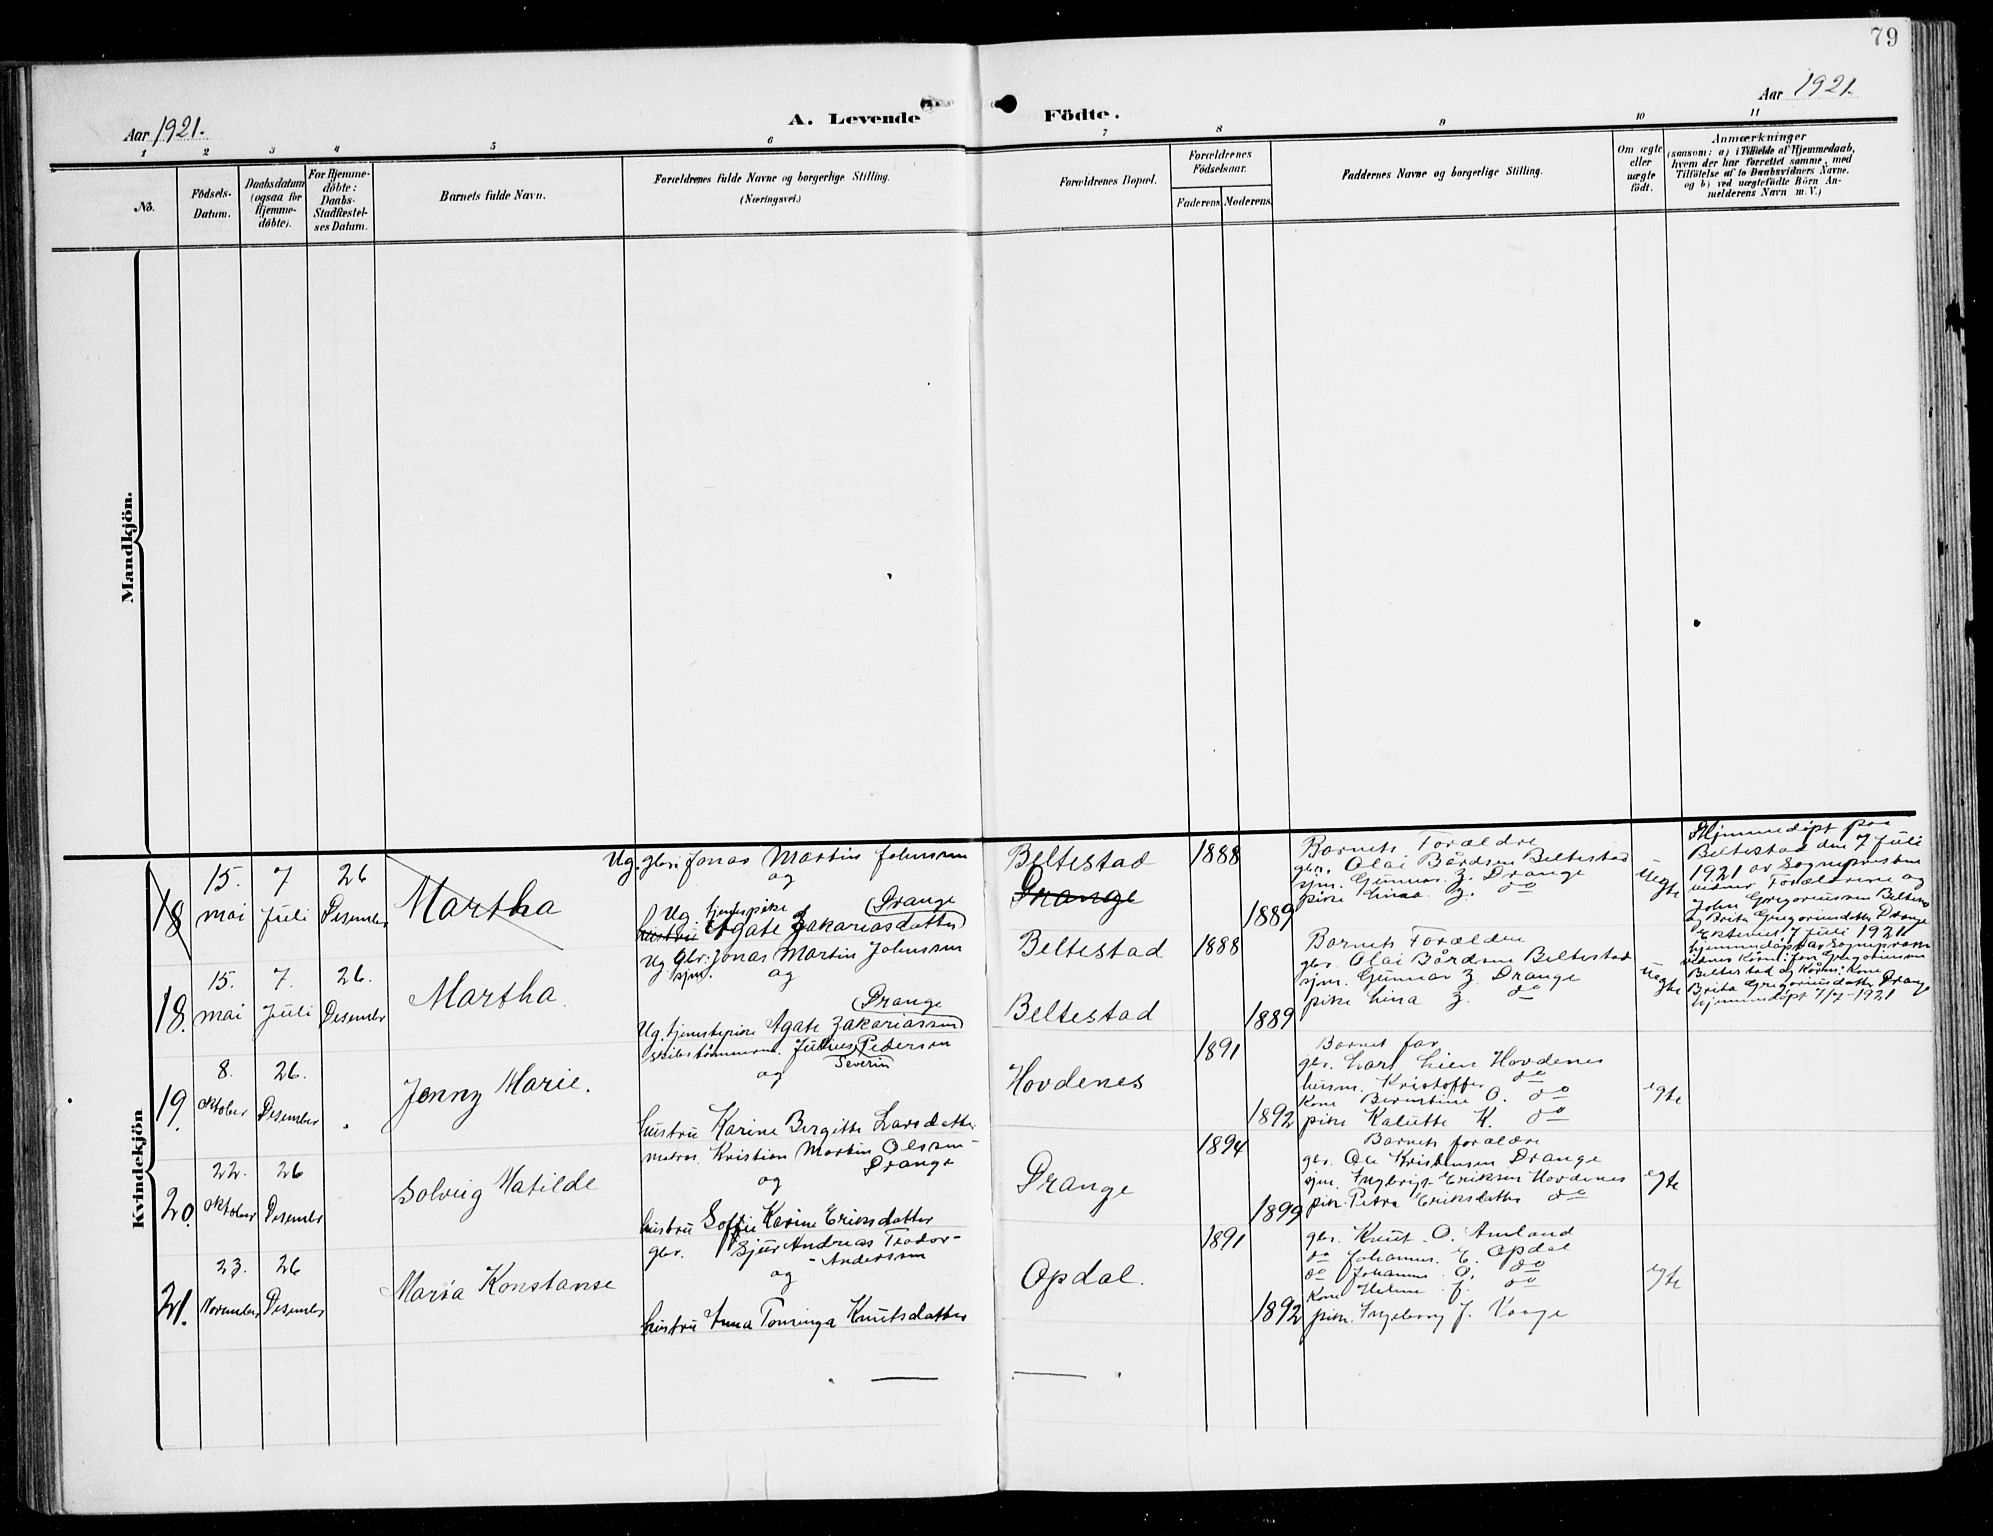 79
Aar 1921.
A. Levende Födte.
Aar 1921.
1 2 3 4 5 6 7 8 9 10 11
No.
Födsels-
Datum.
Daabsdatum
(ogsaa for
Hjemme-
döbte).
For Hjemme-
döbte:
Daabs-
Stadfæstel-
ses Datum.
Barnets fulde Navn.
Forældrenes fulde Navne og borgerlige Stilling.
(Næringsvei.)
Forældrenes Bopæl.
Forældrenes
Födselsaar.
Faderens
Moderens.
Faddernes Navne og borgerlige Stilling.
Om ægte
eller
uægte
födt.
Anmærkninger
(saasom: a) i Tilfælde af Hjemmedaab,
hvem der har forrettet samme, med
Tilföielse af to Daabsvidners Navne,
og b) ved uægtefödte Börn An-
melderens Navn m. V.)
Mandkjön.
Kvindekjön
18
15.
mai
7
Juli
26
Desember
Martha
Ug. gbr. Jonas Martin Johnsen
og
Ug. tjenestepike Drange
hustru Agate Zakariasdatter
Beltestad
Drange
1888
1889
Barnets Forældre
gbr. Olai Bårdsen Beltestad
sjm. Gunnar Z. Drange
pike Lina Z. do
Uegte
Hjemmedöpt paa
Beltestad den 7 Juli
1921 av Sognepresten
vidner Forældrene og
John Gregoriussen Beltes
og Brita Gregoriusdatter Drange
18.
15.
mai
7.
Juli
26.
Desember
Martha.
Ug Gbr. Jonas Martin Johnsen
sjm. og
Drange
Ug. tjenestepike Agate Zakariassen
Beltestad
Beltestad
1888
1889
Barnets Foreldre
gbr Olai Bårdsen Beltestad
sjm. Gunnar Z. Drange
pike Lina Z. do
Uegte
7 Juli 1921
hjemmedöpt av Sognepresten
Beltestad og Kone
Brita Gregoriusdatter Drange
hjemmedöpt 7/7-1921
19.
8.
Oktober
26.
Desember
Jenny Marie.
skibstømmerm. Julius Pedersen
Severin
og
hustru Karine Bergitte Larsdatter
Hovdenes
1891
1892
Barnet far
gbr. Lars Lien Hovdenes
husm. Kristoffer do
Kone Berentine O. do
pike K. do
egte
20.
22.
Oktober
26
Desember
Solveig Matilde
matros. Kristian Martin Olsen-
Drange
og
hustru Soffie Karine Eriksdatter
Drange
1894
1899
Barnets forældre
gbr. Ole Kristensen Drange
sjm. Ingbrigt Eriksen Hovdenes
pike Petra Eriksdatter do
egte
21.
23.
November
26
Desember
Maria Konstanse
gbr. Sjur Andreas Teodor-
Andersen
og
hustru Anna Tominga Knutsdatter
Opdal.
1891
1892
gbr. Knut O. Amland
do Johannes. E. Opdal
do Johannes O. do
Kone Helene J. do
pike. Ingeborg J. Vaage
egte